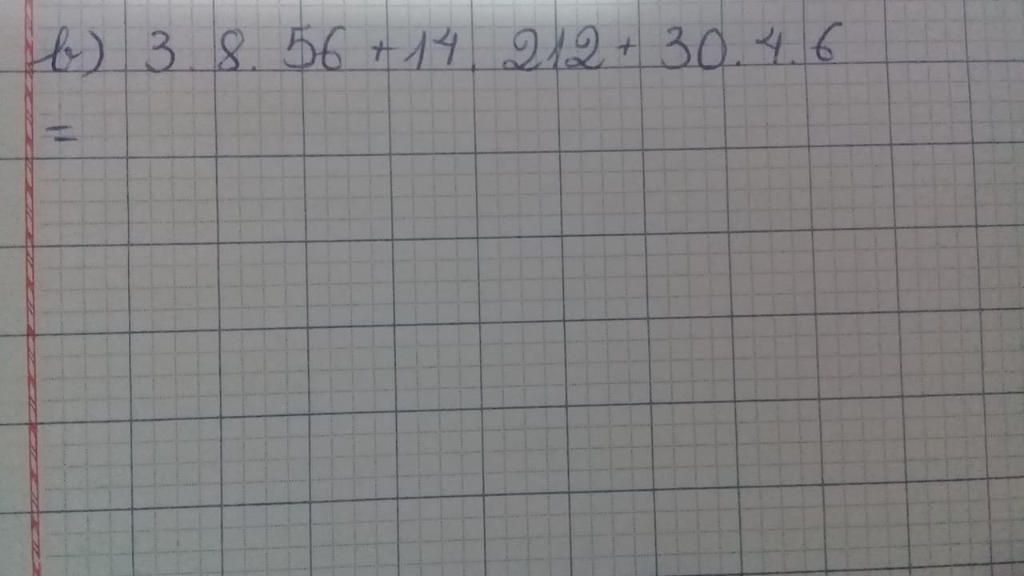 b) 3.8.56 + 14.212 + 30.4.6
=